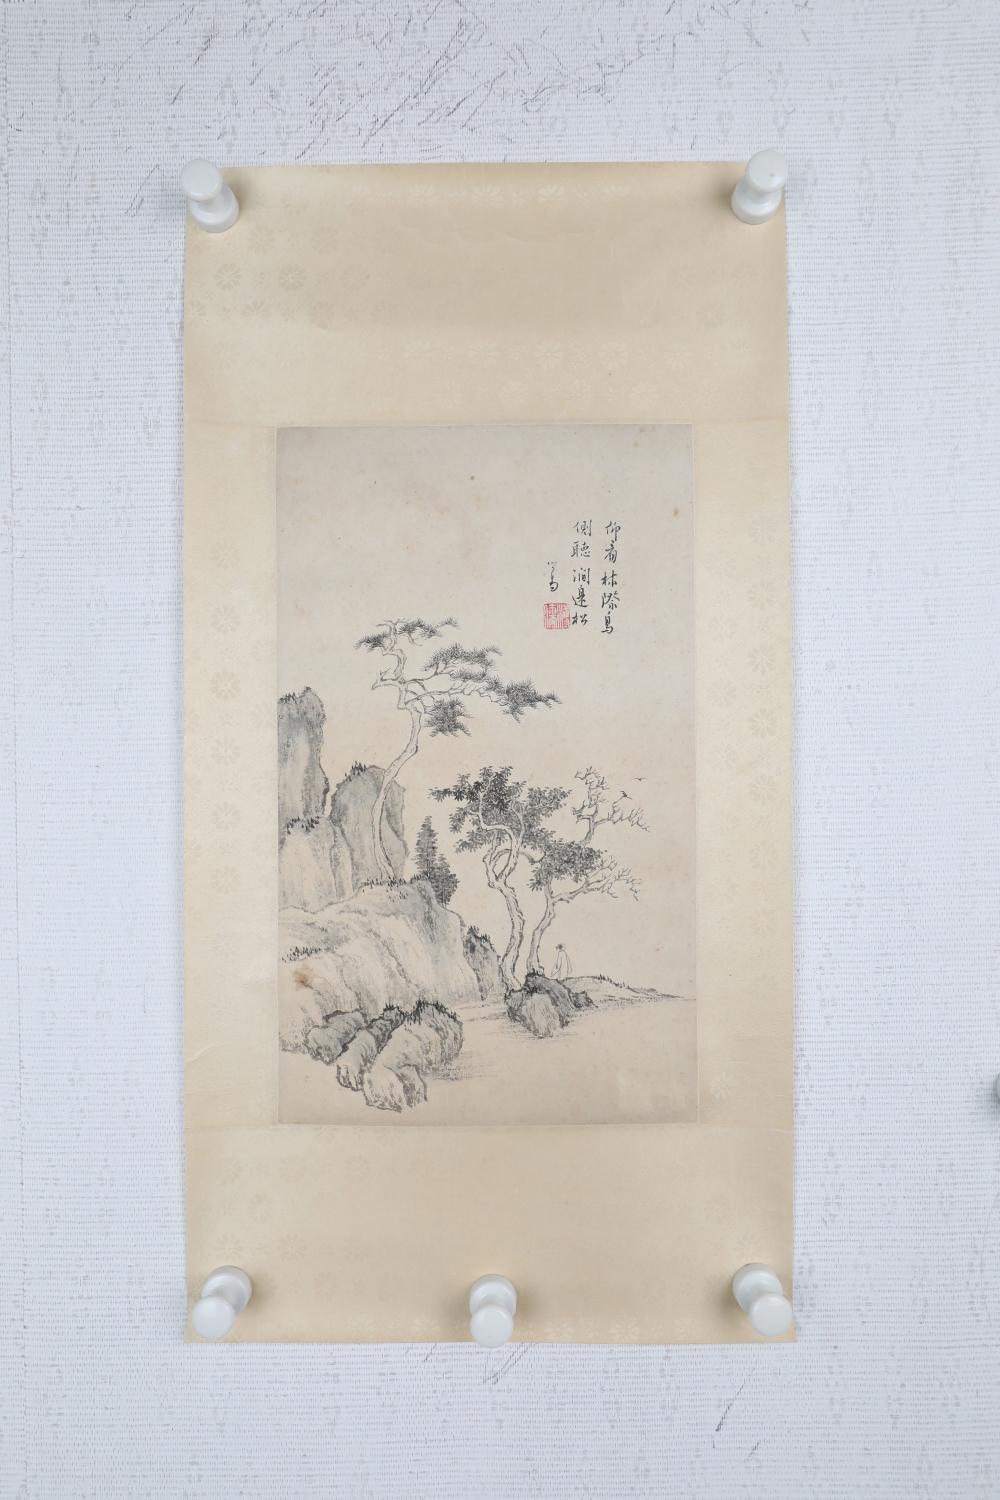 仰看林際鳥
側聽澗邊松